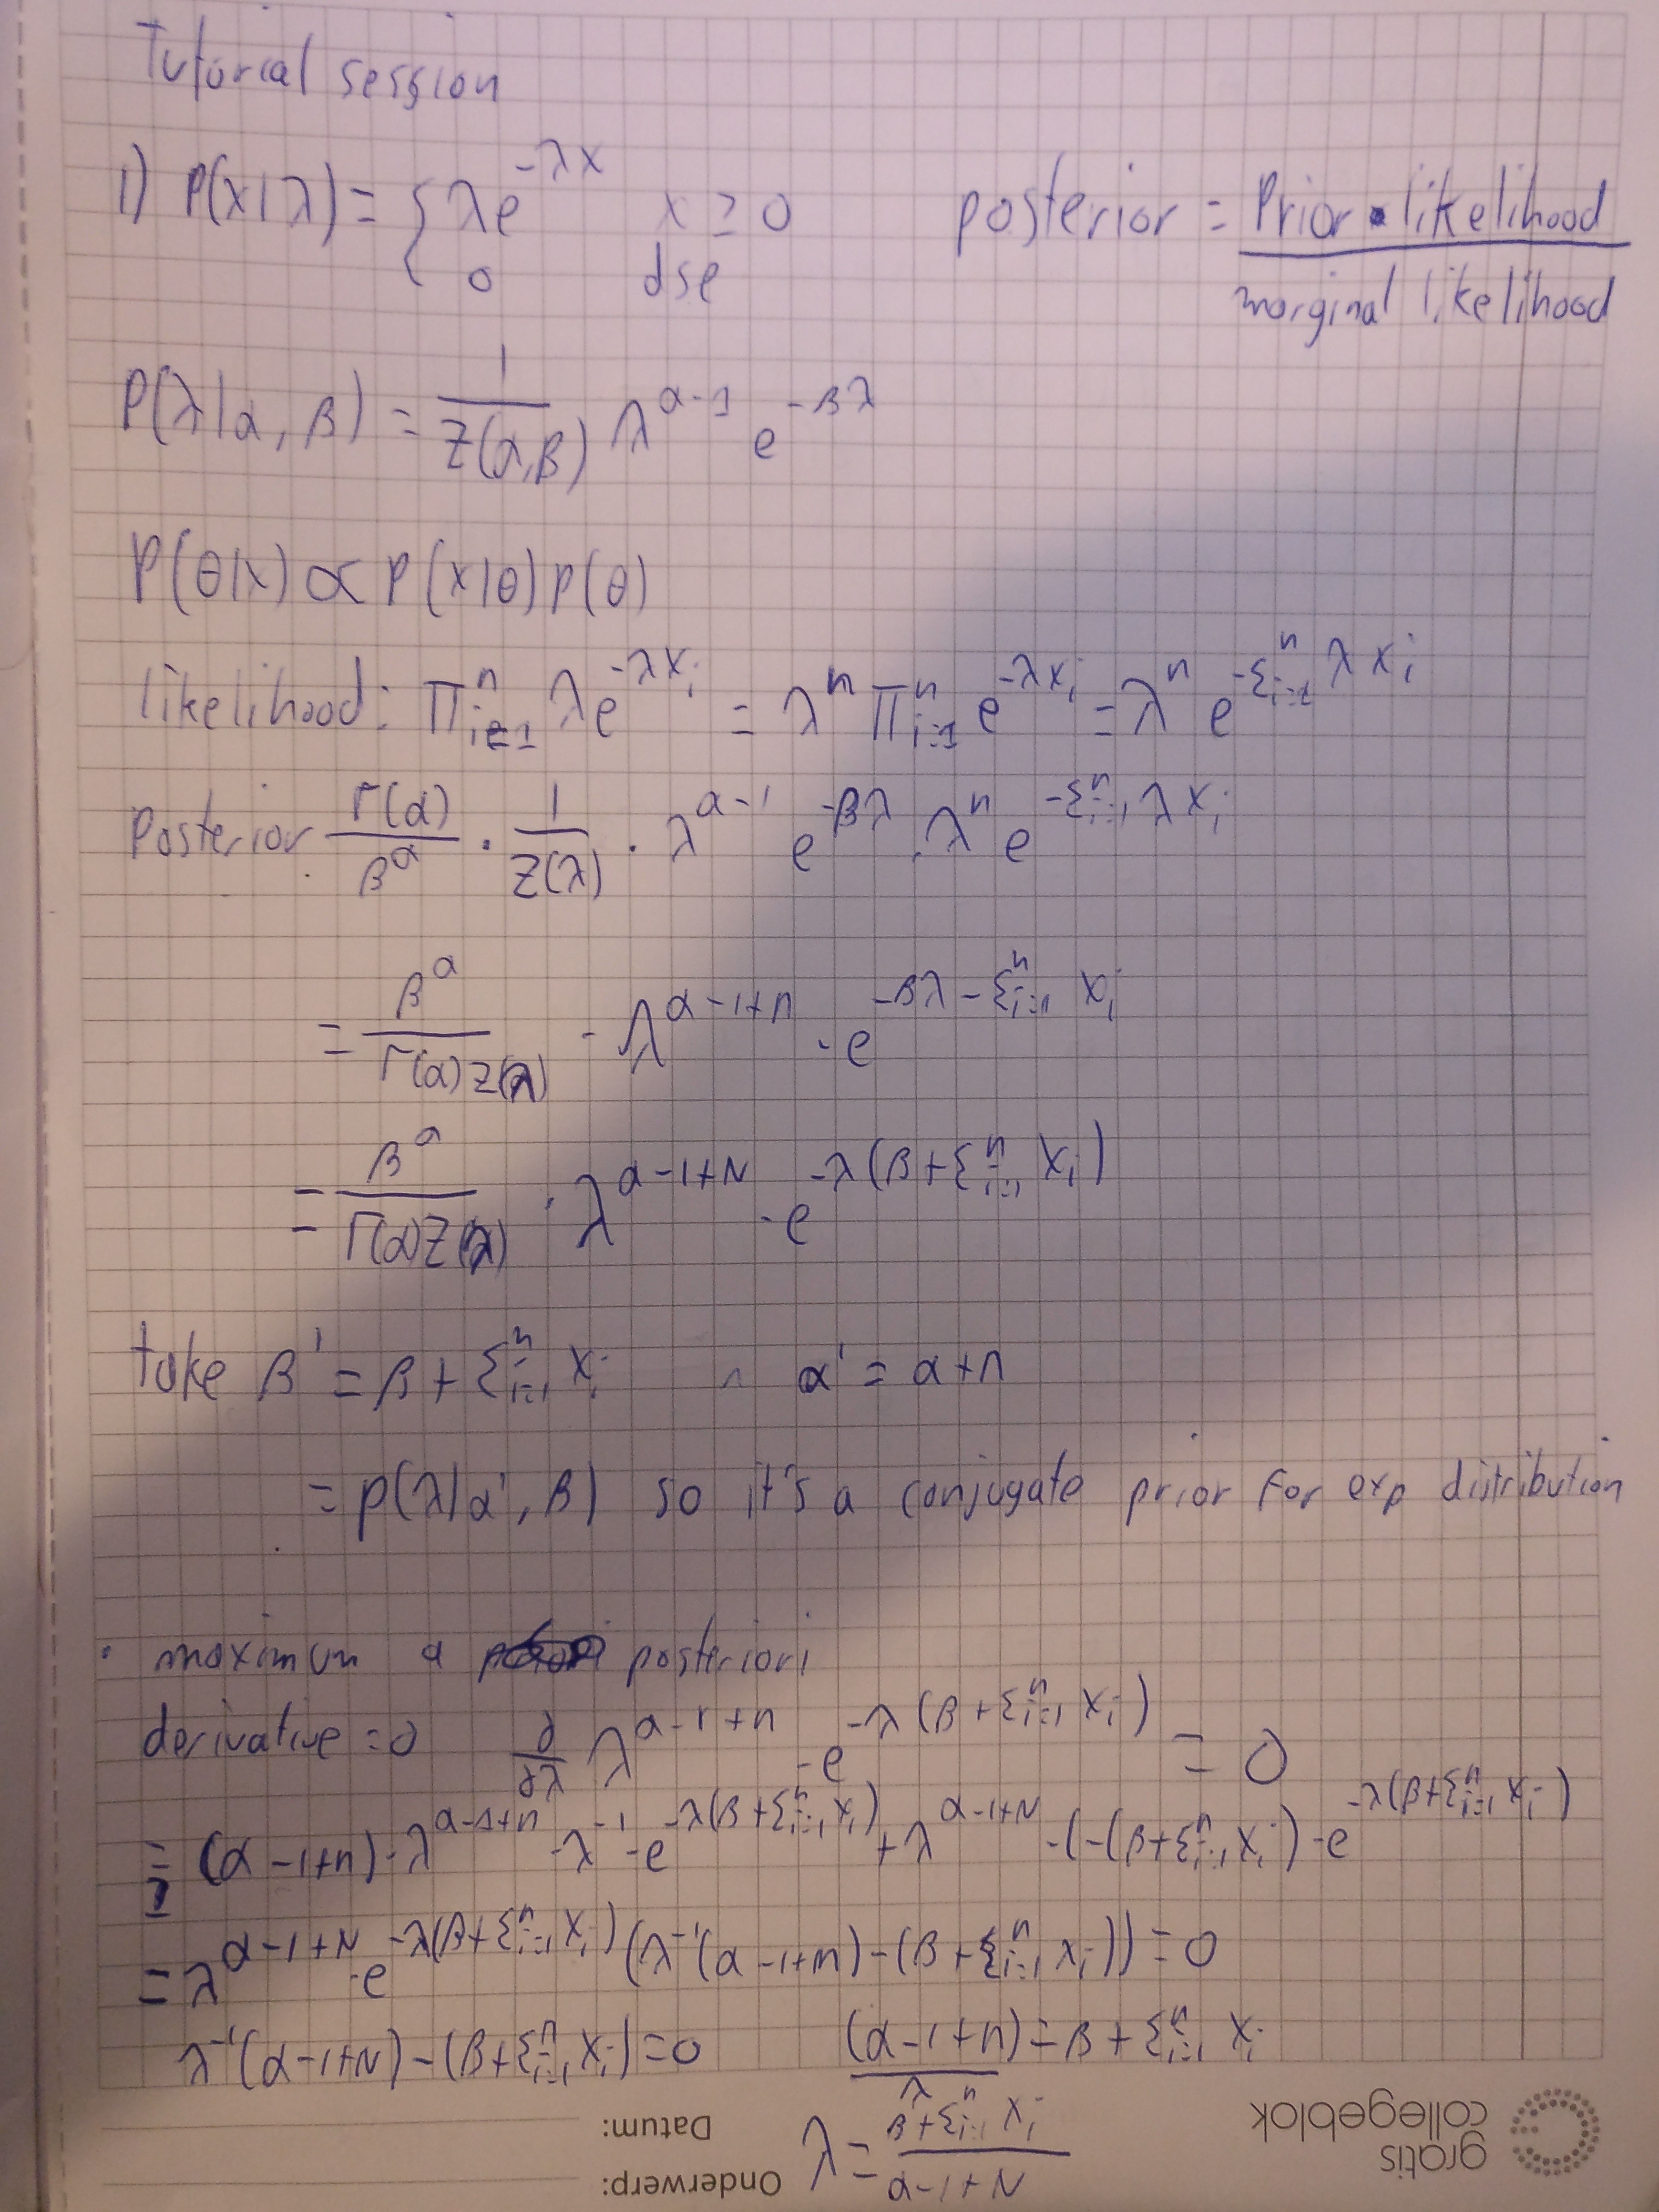 Tutorial session
1) P(x|λ) = { λe^{-λx} x ≥ 0 posterior = Prior · likelihood
0 else marginal likelihood
P(λ|α, β) = 1/Z(α,β) λ^{α-1} e^{-βλ}
P(θ|x) ∝ P(x|θ) p(θ)
likelihood: Π_{i=1}^n λe^{-λx_i} = λ^n Π_{i=1}^n e^{-λx_i} = λ^n e^{-Σ_{i=1}^n λx_i}
Posterior Γ(α)/β^α · 1/Z(λ) · λ^{α-1} e^{-βλ} · λ^n e^{-Σ_{i=1}^n λx_i}
= β^α/Γ(α)Z(λ) · λ^{α-1+n} · e^{-βλ-Σ_{i=1}^n x_i}
= β^α/Γ(α)Z(λ) · λ^{α-1+N} · e^{-λ(β+Σ_{i=1}^n x_i)}
take β' = β + Σ_{i=1}^n x_i ∧ α' = α+n
= p(λ|α', β) so it's a conjugate prior for exp distribution
· maximum a posteriori
derivative = 0 ∂/∂λ λ^{α-1+n} · e^{-λ(β+Σ_{i=1}^n x_i)} = 0
= (α-1+n) · λ^{α-1+n} · λ^{-1} · e^{-λ(β+Σ_{i=1}^n x_i)} + λ^{α-1+N} · (-(β+Σ_{i=1}^n x_i) · e^{-λ(β+Σ_{i=1}^n x_i)}
= λ^{α-1+N} · e^{-λ(β+Σ_{i=1}^n x_i)} (λ^{-1}(α-1+n) - (β+Σ_{i=1}^n x_i)) = 0
λ^{-1}(α-1+N) - (β+Σ_{i=1}^n x_i) = 0 (α-1+n)/λ = β + Σ_{i=1}^n x_i
λ = β+Σ_{i=1}^n x_i / α-1+N
gratis
collegeblok
Onderwerp:
Datum: